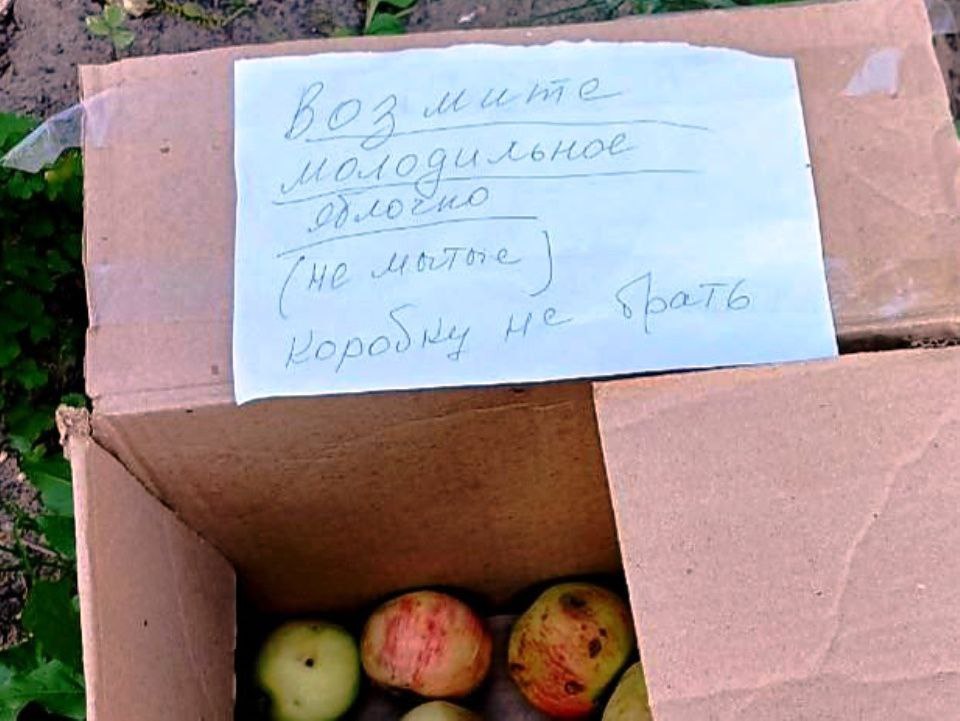 Возмите
молодильное
яблочко
(не мытые)
коробку не брать